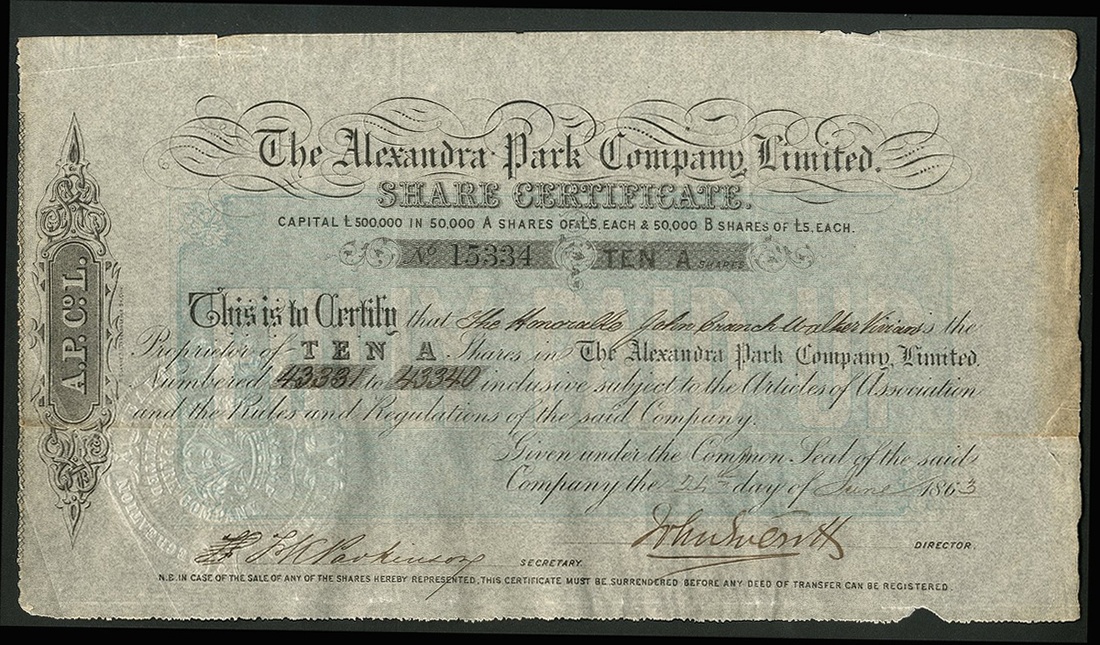 The Alexandra Park Company, Limited.
SHARE CERTIFICATE.
CAPITAL £500,000 IN 50,000 A SHARES OF £5, EACH & 50,000 B SHARES OF £5, EACH.
No 15334 TEN A SHARES
A.P. Co. L.
FULLY PAID UP
This is to Certify that The Honorable John Cranch Walker Vivian is the
Proprietor of TEN A Shares in The Alexandra Park Company, Limited.
Numbered 43331 to 43340 inclusive subject to the Articles of Association
and the Rules and Regulations of the said Company.
Given under the Common Seal of the said
Company the day of June 1863
Parkinson SECRETARY.
John Everitt DIRECTOR.
N.B. IN CASE OF THE SALE OF ANY OF THE SHARES HEREBY REPRESENTED, THIS CERTIFICATE MUST BE SURRENDERED BEFORE ANY DEED OF TRANSFER CAN BE REGISTERED.